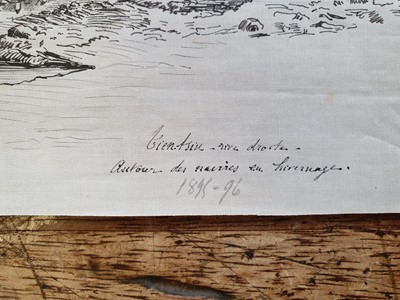 Tien-tsin - rive droite -
Autour des navires en hivernage -
1895-96